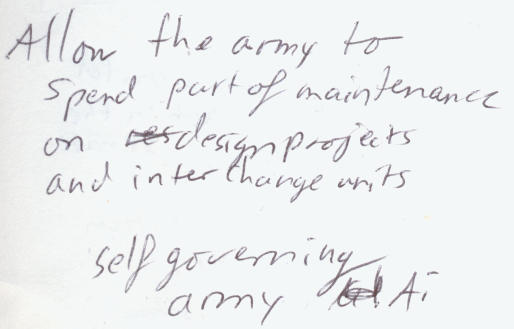 Allow the army to
spend part of maintenance
on designprojects
and interchange units
self governing
army Ai